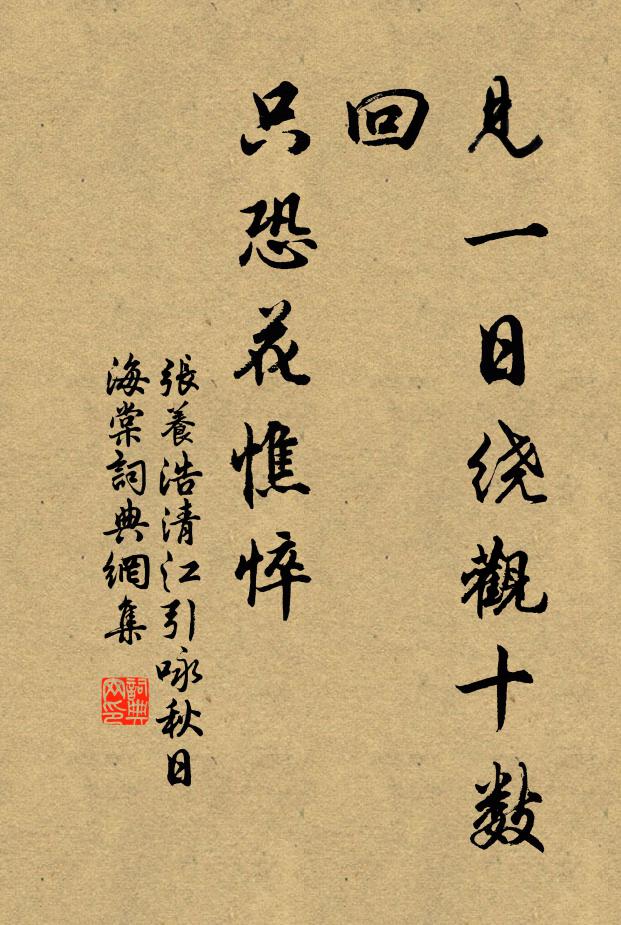 見一日绕觀十数
回
只恐花憔悴
張養浩清江引咏秋日
海棠詞典網集
詞典
网印